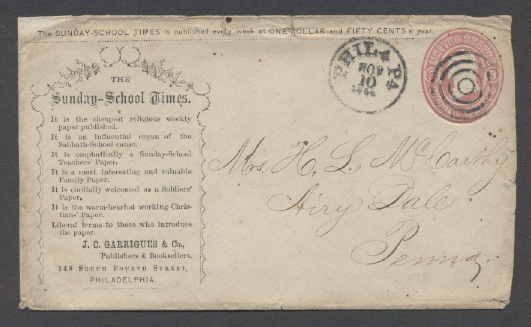 The SUNDAY-SCHOOL TIMES is published every week at ONE DOLLAR and FIFTY CENTS a year.
PHIL'A PA
NOV
10
THE
Sunday-School Times.
It is the cheapest religious weekly
paper published.
It is an influential organ of the
Sabbath-School cause.
It is emphatically a Sunday-School
Teachers' Paper.
It is a most interesting and valuable
Family Paper.
It is cordially welcomed as a Soldiers'
Paper.
It is the warm-hearted working Chris-
tians' Paper.
Liberal terms to those who introduce
the paper.
J. C. GARRIGUES & Co.,
Publishers & Booksellers,
148 SOUTH FOURTH STREET,
PHILADELPHIA.
Mrs. H. L. McCarthy
Airy Dale
Penna.